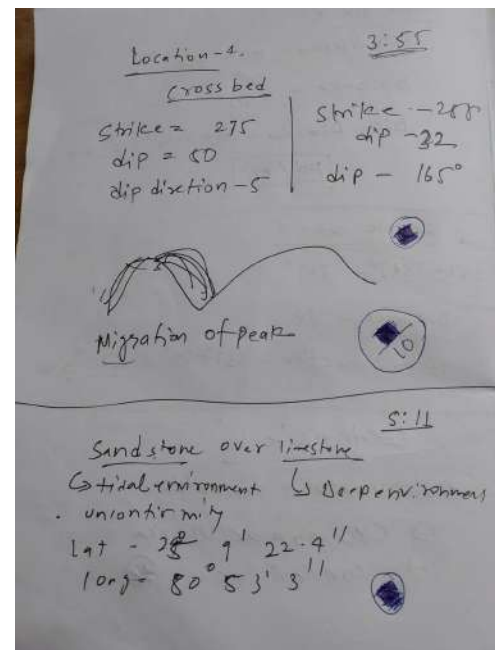 Location-4. 3:55
Cross bed
Strike = 275
dip = 50
dip dirction - 5
Strike -
dip - 32
dip - 165°
Migration of peak
10
5:11
Sandstone over limestone
↳ tidal environment ↳ Deep environment
. unconfirmity
Lat - 9' 22.4"
long - 80° 53' 3"